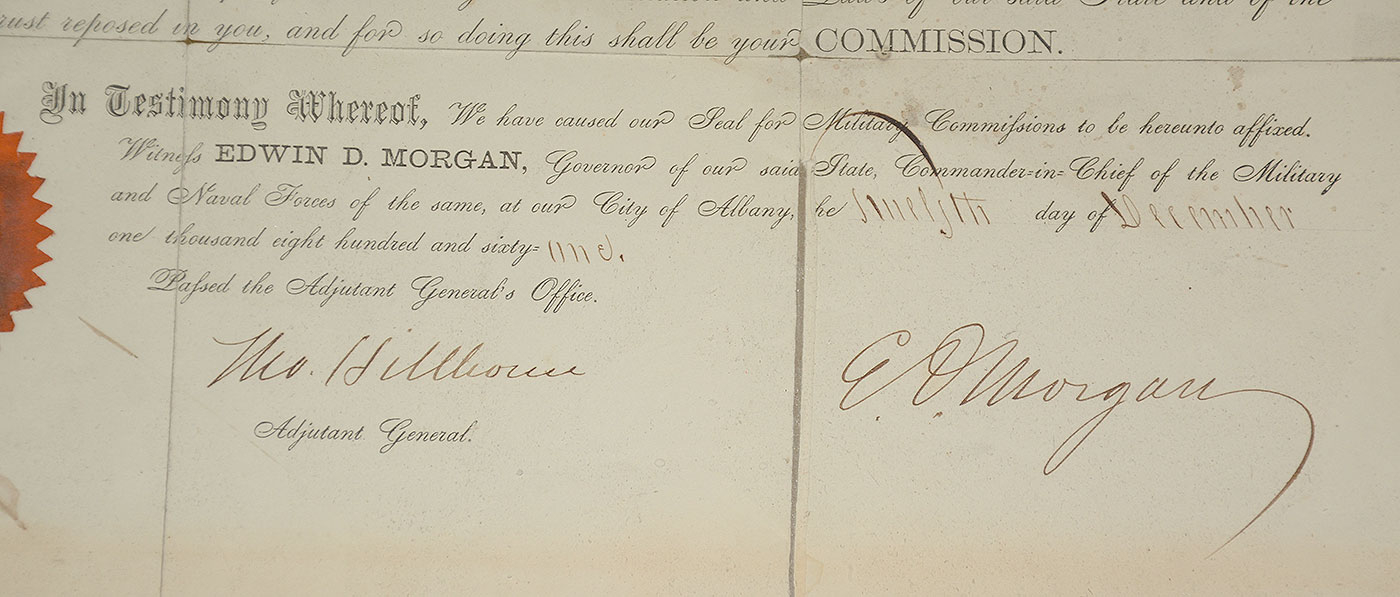 Laws of our said State and of the
rust reposed in you, and for so doing this shall be your COMMISSION.
In Testimony Whereof, We have caused our Seal for Military Commissions to be hereunto affixed.
Witness EDWIN D. MORGAN, Governor of our said State, Commander-in-Chief of the Military
and Naval Forces of the same, at our City of Albany, he Twelfth day of December
one thousand eight hundred and sixty-one.
Passed the Adjutant General's Office.
Tho. Hillhouse
E. D. Morgan
Adjutant General.